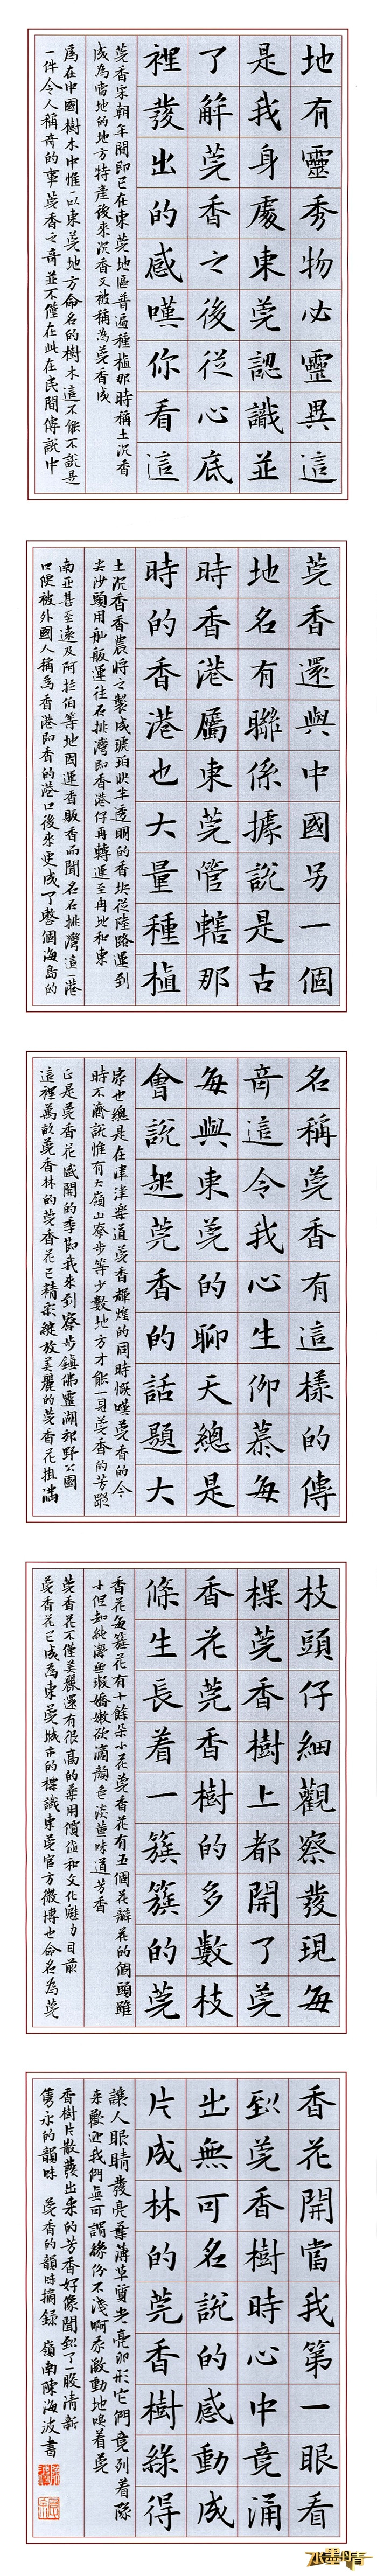 地有靈秀物必靈異這
是我身處東莞認識並
了解莞香之後從心底
裡發出的感嘆你看這
莞香宋朝年間即已在東莞地區普遍種植那時稱土沉香
成為當地的地方特產後來沉香又被稱為莞香成
為在中國樹木中惟一以東莞地方命名的樹木這不能不說是
一件令人稱奇的事莞香之奇並不僅在此在民間傳說中
莞香還與中國另一個
地名有聯係據說是古
時香港屬東莞管轄那
時的香港也大量種植
土沉香香農將之製成琥珀狀半透明的香块從陸路運到
尖沙頭用舢舨運往石排灣即香港仔再轉運至內地和東
南亞甚至遠及阿拉伯等地因運香販香而聞名石排灣這一港
口便被外國人稱為香港即香的港口後來更成了整個海島的
名稱莞香有這樣的傳
奇這令我心生仰慕每
每與東莞的聊天總是
會說起莞香的話題大
家也總是在津津樂道莞香輝煌的同時慨嘆莞香的今
時不濟說惟有大嶺山寮步等少數地方才能一見莞香的芳蹤
正是莞香花盛開的季節我來到寮步鎮佛靈湖郊野公園
這裡萬畝莞香林的莞香花已精彩綻放美麗的莞香花掛滿
枝頭仔細觀察發現每
棵莞香樹上都開了莞
香花莞香樹的多數枝
條生長着一簇簇的莞
香花每簇花有十餘朵小花莞香花有五個花瓣花的個頭雖
小但却純潔無瑕嬌嫩欲滴顏色淡黃味道芳香
莞香花不僅美麗還有很高的藥用價值和文化魅力目前
莞香花已成為東莞城市的標識東莞官方微博也命名為莞
香花開當我第一眼看
到莞香樹時心中竟涌
出無可名說的感動成
片成林的莞香樹綠得
讓人眼睛發亮葉薄草質光亮卵形它們竟列着隊
來歡迎我們真可謂緣份不淺啊香敵動地喚着莞
香樹片散發出來的芳香好像聞到了一股清新
雋永的韻味 莞香的韻味摘錄 嶺南陳海波書
水墨丹青